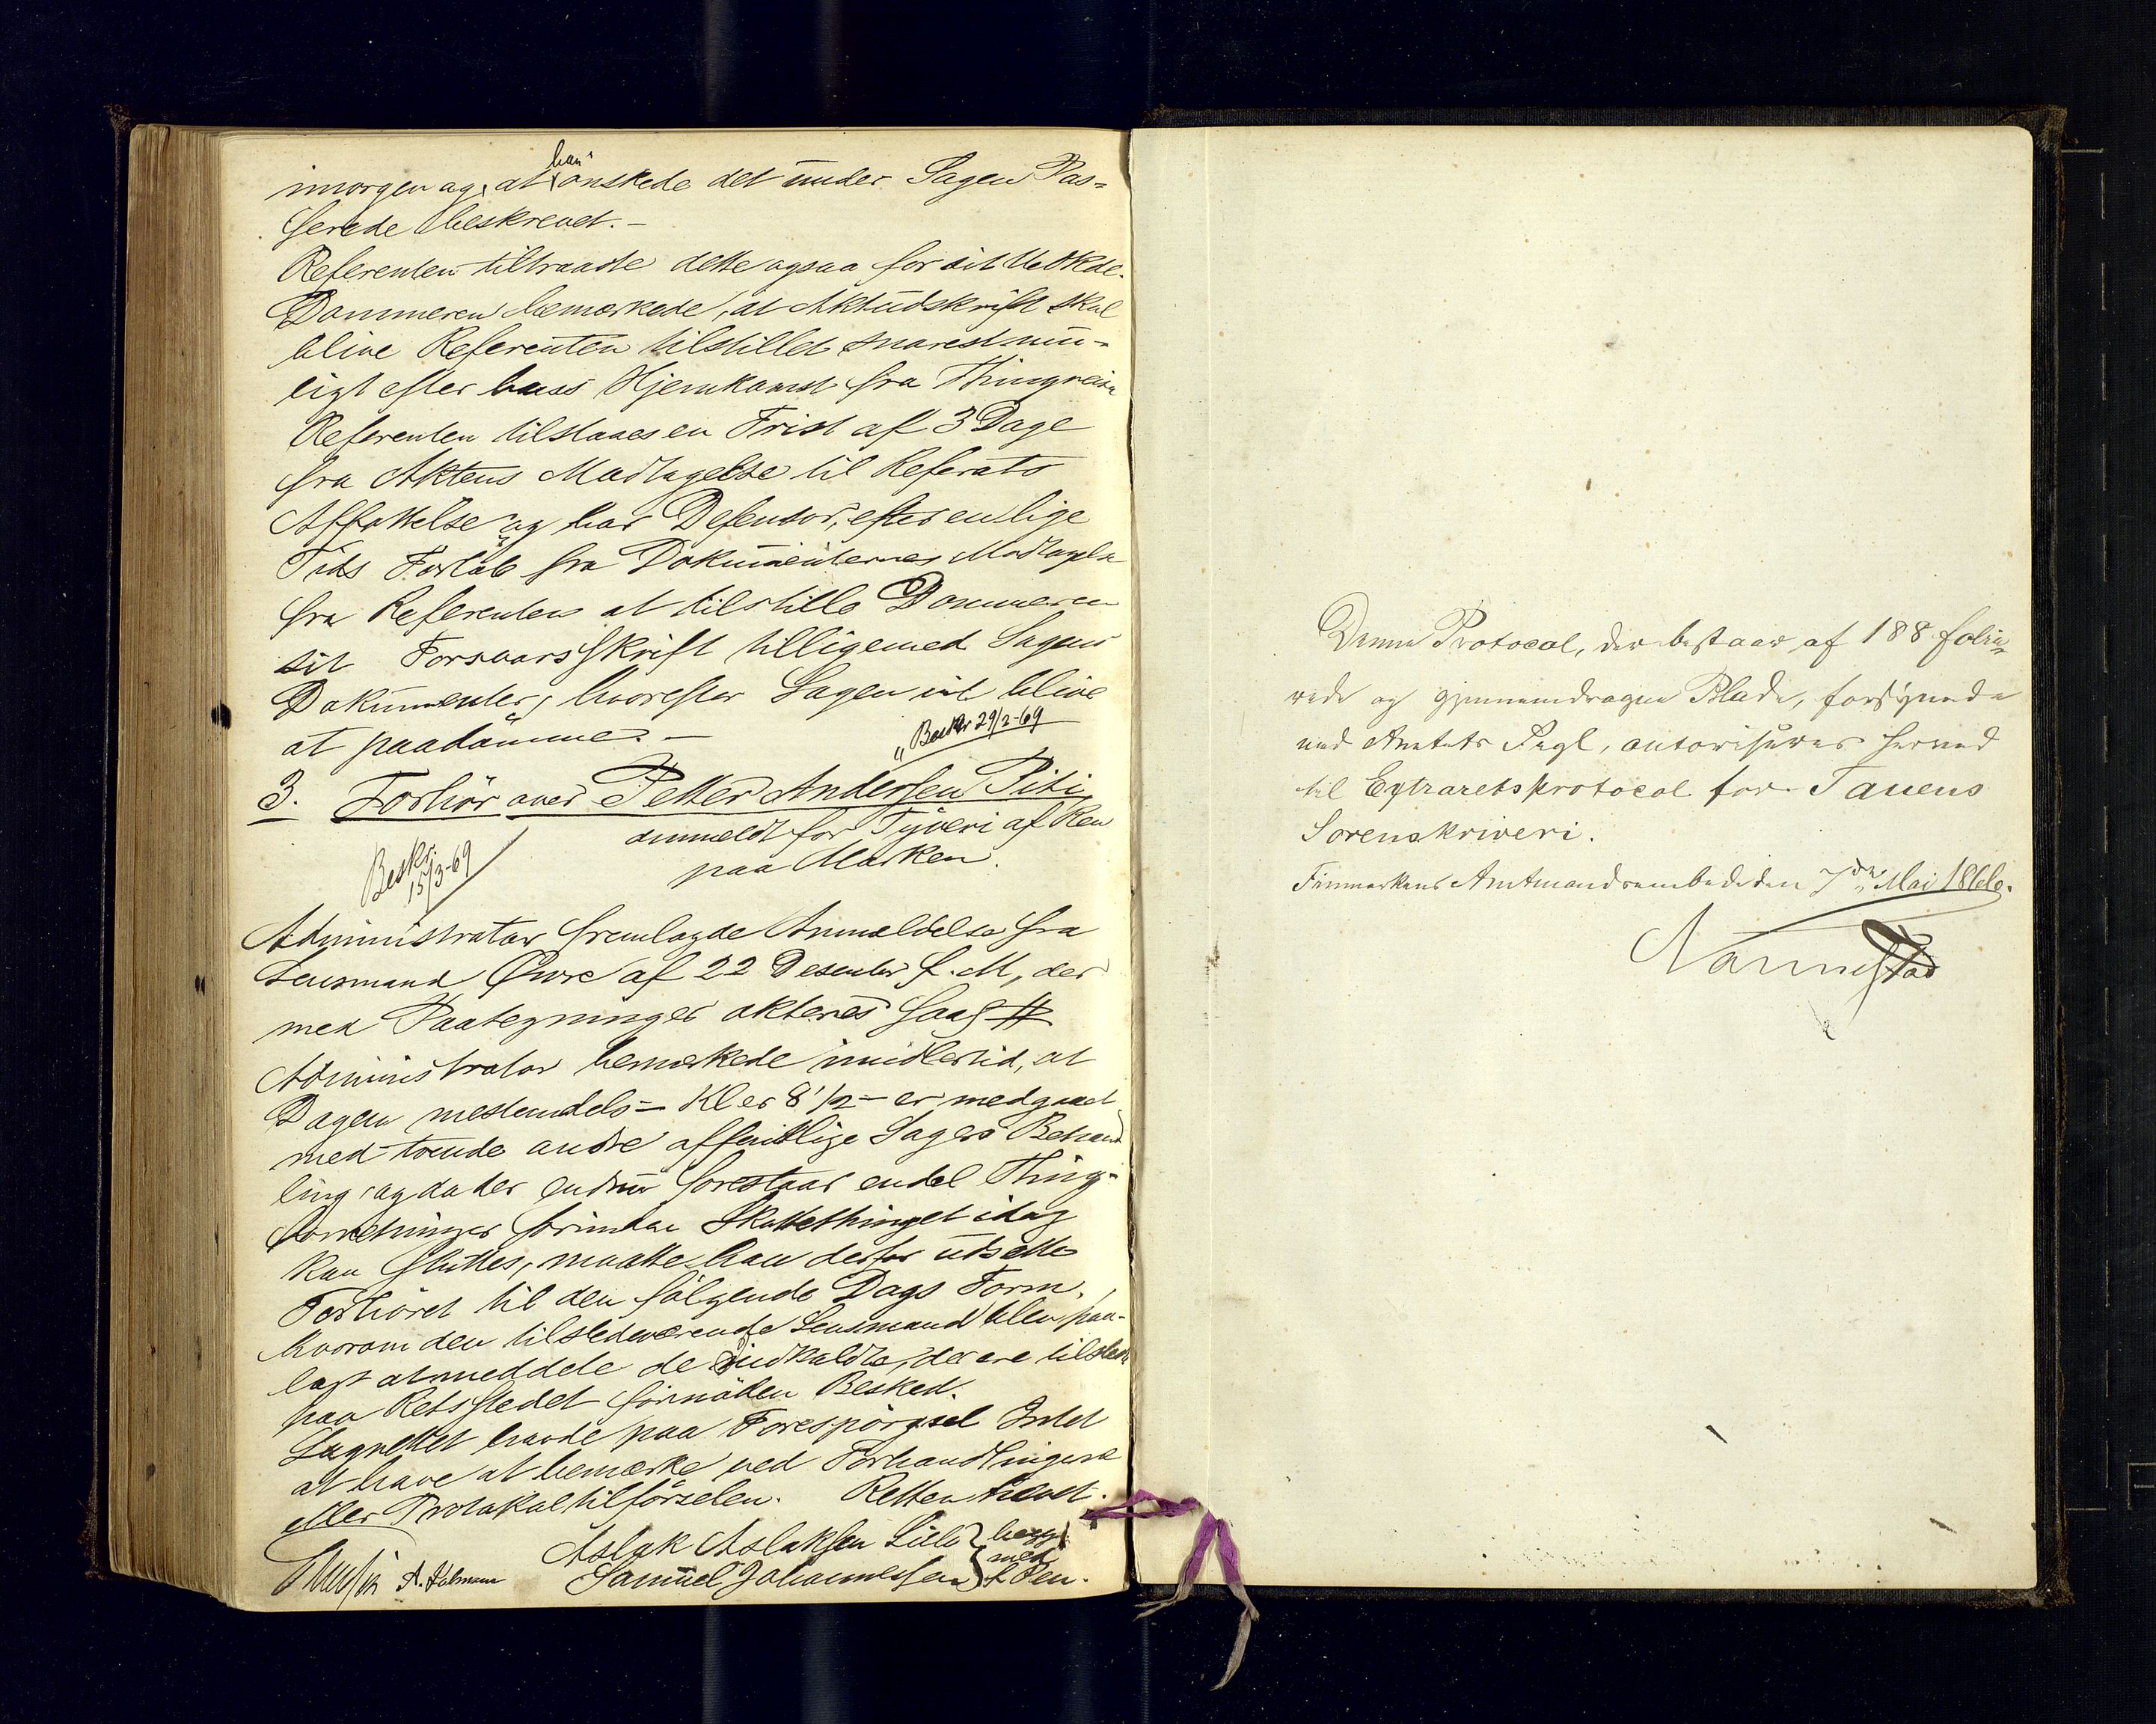 imorgen og at han ønskede det under Sagen Pas-
serede beskrevet. -
Referenten tiltraadte dette ogsaa for sit Vedkde.
Dommeren bemærkede, at Aktudskrift skal
blive Referenten tilstillet snarest mu-
ligt efter hans Hjemkomst fra Thingreisen
Referenten tilstaaes en Frist af 3 Dage
fra Aktens Modtagelse til Referats
Affattelse og har Defensor, efter en lige
Tids Forløb fra Dokumenternes Modtagelse
fra Referenten at tilstille Dommeren
sit Forsvarsskrift tilligemed Sagens
Dokumenter, hvorefter Sagen vil blive
at paadømme. -
"Beskr 29/2-69
3. Forhør over Petter Andersen Piti
anmeldt for Tyveri af Ren
paa Marken.
Beskr.
15/3-69
Administrator fremlagde Anmeldelse fra
Lensmand af 22 Desember f. M, der
med Paategninger akteres saal #
Administrator bemærkede imidlertid, at
Dagen mestendels - Kl er 8 1/2 - er medgaaet
med tvende andre offentlige Sagers Behand
ling og da der endnu forestaar endel Thing-
forretninger førinden Skattethinget idag
kan sluttes, maatte han derfor udsætte
Forhøret til den følgende Dags Form.,
hvorom den tilstedeværende Lensmand blev paa-
lagt at meddele de indkaldte, der ere tilstede
paa Retsstedet fornøden Besked.
Lagrettet havde paa Forespørgsel Intet
at have at bemærke ved Forhandlingerne
eller Protokoltilførselen. Retten hævet.
Aslak Aslaksen Lille } begge
A. Samuel Johannessen } med
f Pen.
Denne Protocol, der bestaar af 188 folie-
rede og gjennemdragne Blade, forsynede
med Amtets Segl, autoriseres herved
til Extraretsprotocol for Tanens
Sorenskriveri.
Finmarkens Amtmandsembede den 7de Mai 1866.
Nannestad